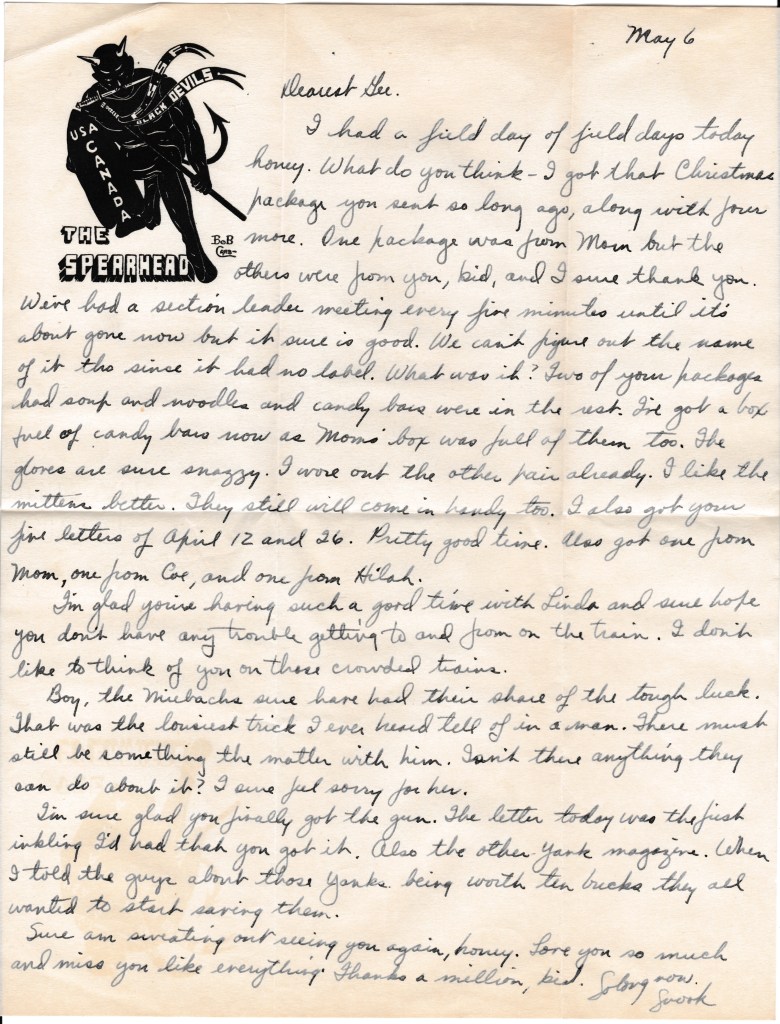 May 6
FSSF
BLACK DEVILS
USA
CANADA
THE
SPEARHEAD
BoB
Dearest Gee.
I had a field day of field days today
honey. What do you think – I got that Christmas
package you sent so long ago, along with four
more. One package was from Mom but the
others were from you, kid, and I sure thank you.
We've had a section leader meeting every five minutes until it's
about gone now but it sure is good. We can't figure out the name
of it tho since it had no label. What was it? Two of your packages
had soup and noodles and candy bars were in the rest. I've got a box
full of candy bars now as Moms' box was full of them too. The
gloves are sure snazzy. I wore out the other pair already. I like the
mittens better. They still will come in handy too. I also got your
five letters of April 12 and 26. Pretty good time. Also got one from
Mom, one from Coe, and one from Hilah.
I'm glad you're having such a good time with Linda and sure hope
you don't have any trouble getting to and from on the train. I don't
like to think of you on those crowded trains.
Boy, the Miebachs sure have had their share of the tough luck.
That was the lousiest trick I ever heard tell of in a man. There must
still be something the matter with him. Isn't there anything they
can do about it? I sure feel sorry for her.
I'm sure glad you finally got the gun. The letter today was the first
inkling I'd had that you got it. Also the other Yank magazine. When
I told the guys about those Yanks being worth ten bucks they all
wanted to start saving them.
Sure am sweating out seeing you again, honey. Love you so much
and miss you like everything. Thanks a million, kid. So long now.